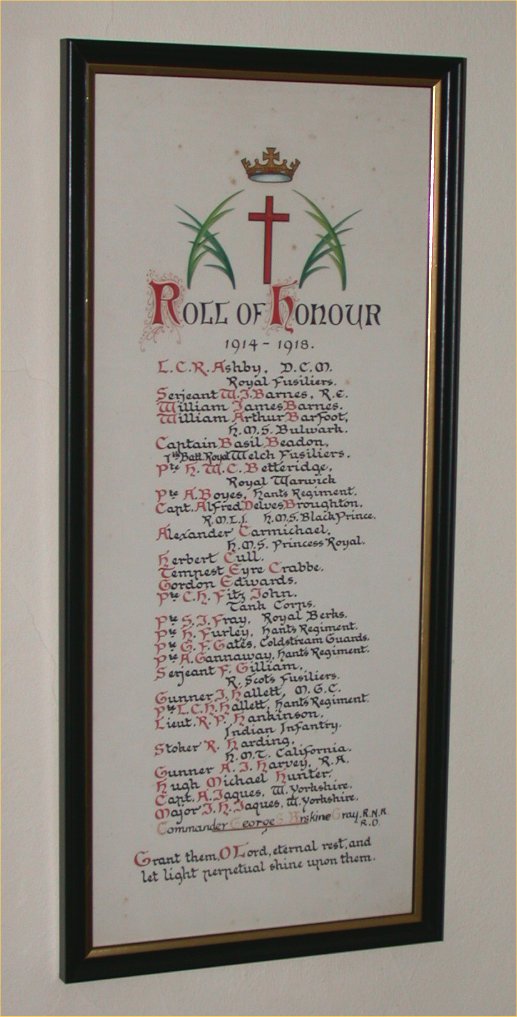 Roll of Honour
1914 - 1918.
L.C.R. Ashby, D.C.M.
Royal Fusiliers.
Serjeant W.J. Barnes, R.E.
William James Barnes.
William Arthur Barfoot,
H.M.S. Bulwark.
Captain Basil Beadon,
1st Batt. Royal Welch Fusiliers.
Pte H. W. C. Betteridge,
Royal Warwick
Pte A. Boyes, Hants Regiment.
Capt. Alfred Delves Broughton,
R.M.L.I. H.M.S. Black Prince.
Alexander Carmichael,
H.M.S. Princess Royal.
Herbert Cull.
Tempest Eyre Crabbe.
Gordon Edwards.
Pte C. H. Fitz John,
Tank Corps.
Pte S. J. Fray, Royal Berks.
Pte H. Furley, Hants Regiment.
Pte G. F. Gates, Coldstream Guards.
Pte A. Gannaway, Hants Regiment.
Serjeant F. Gilliam,
R. Scots Fusiliers.
Gunner J. Hallett, M.G.C.
Pte L. C. H. Hallett, Hants Regiment.
Lieut. R. P. Hankinson,
Indian Infantry.
Stoker R. Harding,
H.M.T. California.
Gunner A. J. Harvey, R.A.
Hugh Michael Hunter.
Capt. A. Jaques, W. Yorkshire.
Major J. H. Jaques, W. Yorkshire.
Commander George Erskine Gray, R.N.R.
R.D.
Grant them, O Lord, eternal rest, and
let light perpetual shine upon them.